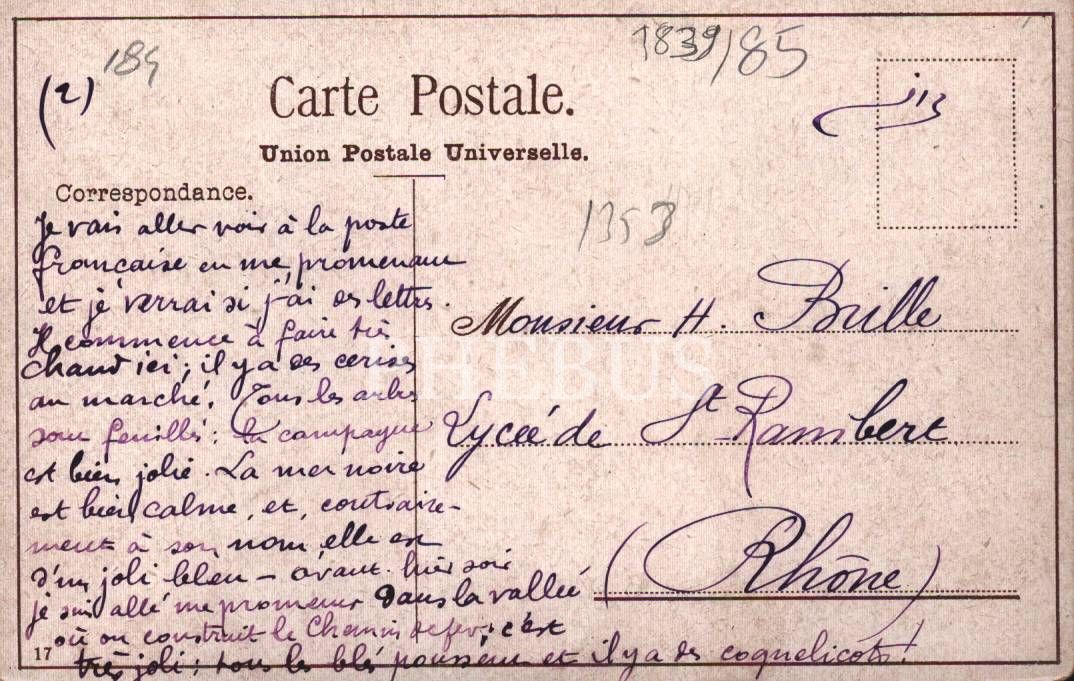 184
1839/85
(2)
Carte Postale.
Union Postale Universelle.
Correspondance.
1353
Je vais aller voir à la poste
française en me promenant
et je verrai si j'ai des lettres.
Il commence à faire très
chaud ici ; il y a des cerises
au marché. Tous les arbres
sont feuillés : la campagne
est bien jolie. La mer noire
est bien calme, et, contraire-
ment à son nom, elle est
d'un joli bleu – avant-hier soir
je suis allé me promener dans la vallée
où on construit le chemin de fer ; c'est
très joli ; tous les blés poussent et il y a des coquelicots !
Monsieur H. Brille
Lycée de St Rambert
(Rhône)
PHEBUS
17